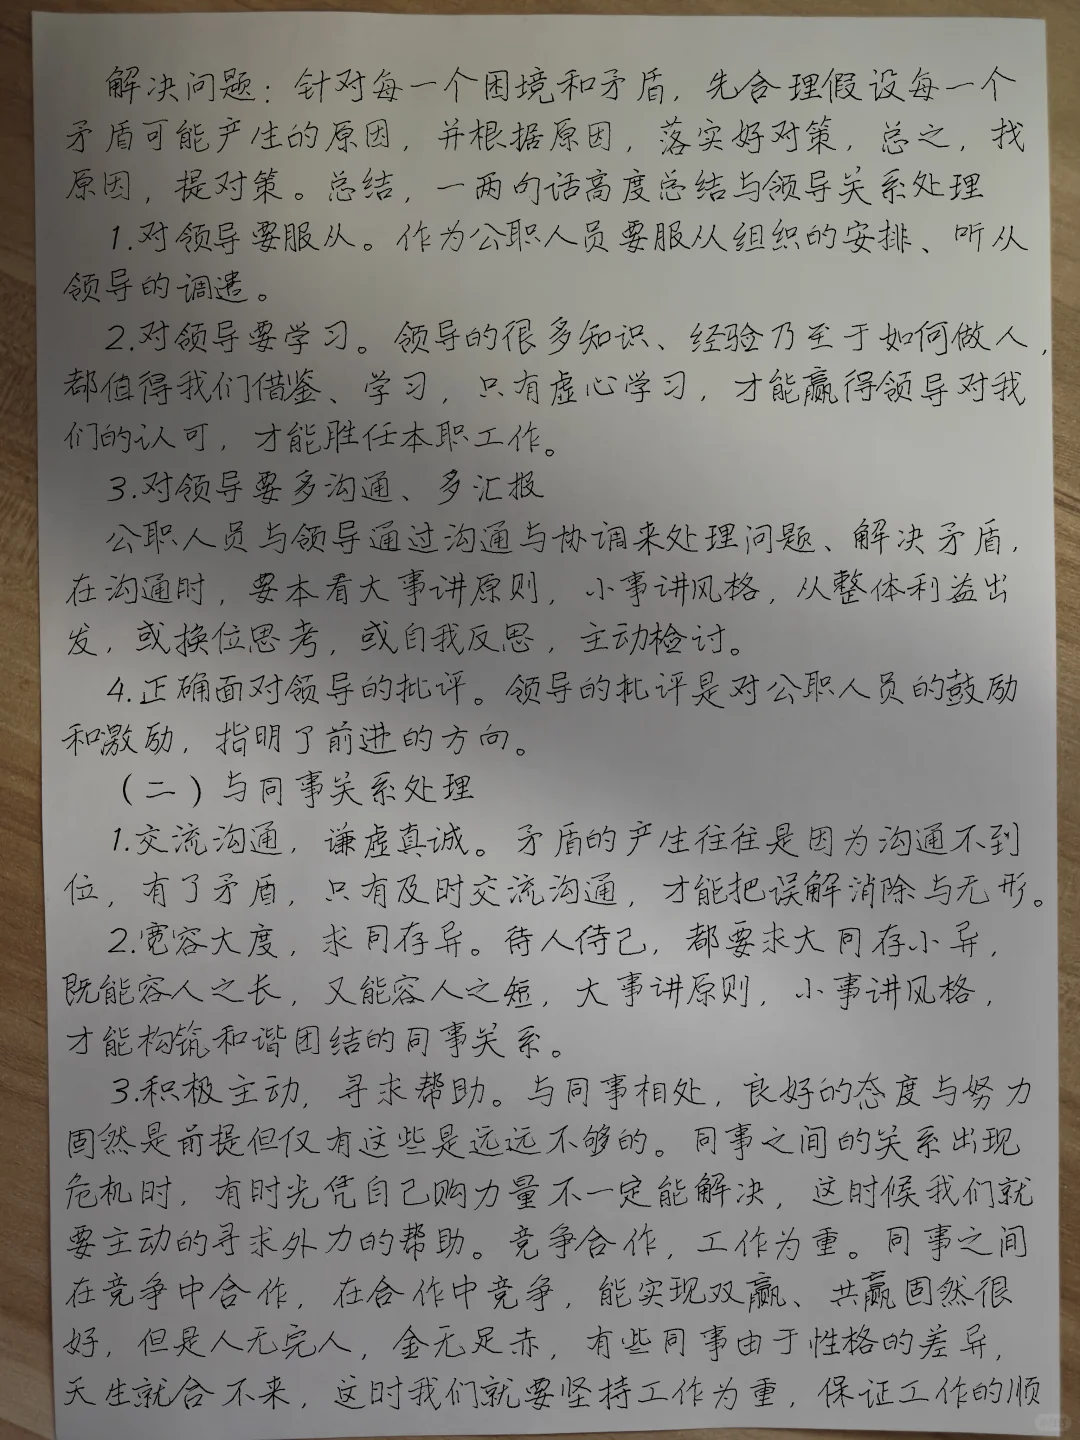 解决问题：针对每一个困境和矛盾，先合理假设每一个
矛盾可能产生的原因，并根据原因，落实好对策，总之，找
原因，提对策。总结，一两句话高度总结与领导关系处理
1.对领导要服从。作为公职人员要服从组织的安排、听从
领导的调遣。
2.对领导要学习。领导的很多知识、经验乃至于如何做人，
都值得我们借鉴、学习，只有虚心学习，才能赢得领导对我
们的认可，才能胜任本职工作。
3.对领导要多沟通、多汇报
公职人员与领导通过沟通与协调来处理问题、解决矛盾，
在沟通时，要本着大事讲原则，小事讲风格，从整体利益出
发，或换位思考，或自我反思，主动检讨。
4.正确面对领导的批评。领导的批评是对公职人员的鼓励
和激励，指明了前进的方向。
（二）与同事关系处理
1.交流沟通，谦虚真诚。矛盾的产生往往是因为沟通不到
位，有了矛盾，只有及时交流沟通，才能把误解消除与无形。
2.宽容大度，求同存异。待人侍己，都要求大同存小异，
既能容人之长，又能容人之短，大事讲原则，小事讲风格，
才能构筑和谐团结的同事关系。
3.积极主动，寻求帮助。与同事相处，良好的态度与努力
固然是前提但仅有这些是远远不够的。同事之间的关系出现
危机时，有时光凭自己购力量不一定能解决，这时候我们就
要主动的寻求外力的帮助。竞争合作，工作为重。同事之间
在竞争中合作，在合作中竞争，能实现双赢、共赢固然很
好，但是人无完人，金无足赤，有些同事由于性格的差异，
天生就合不来，这时我们就要坚持工作为重，保证工作的顺